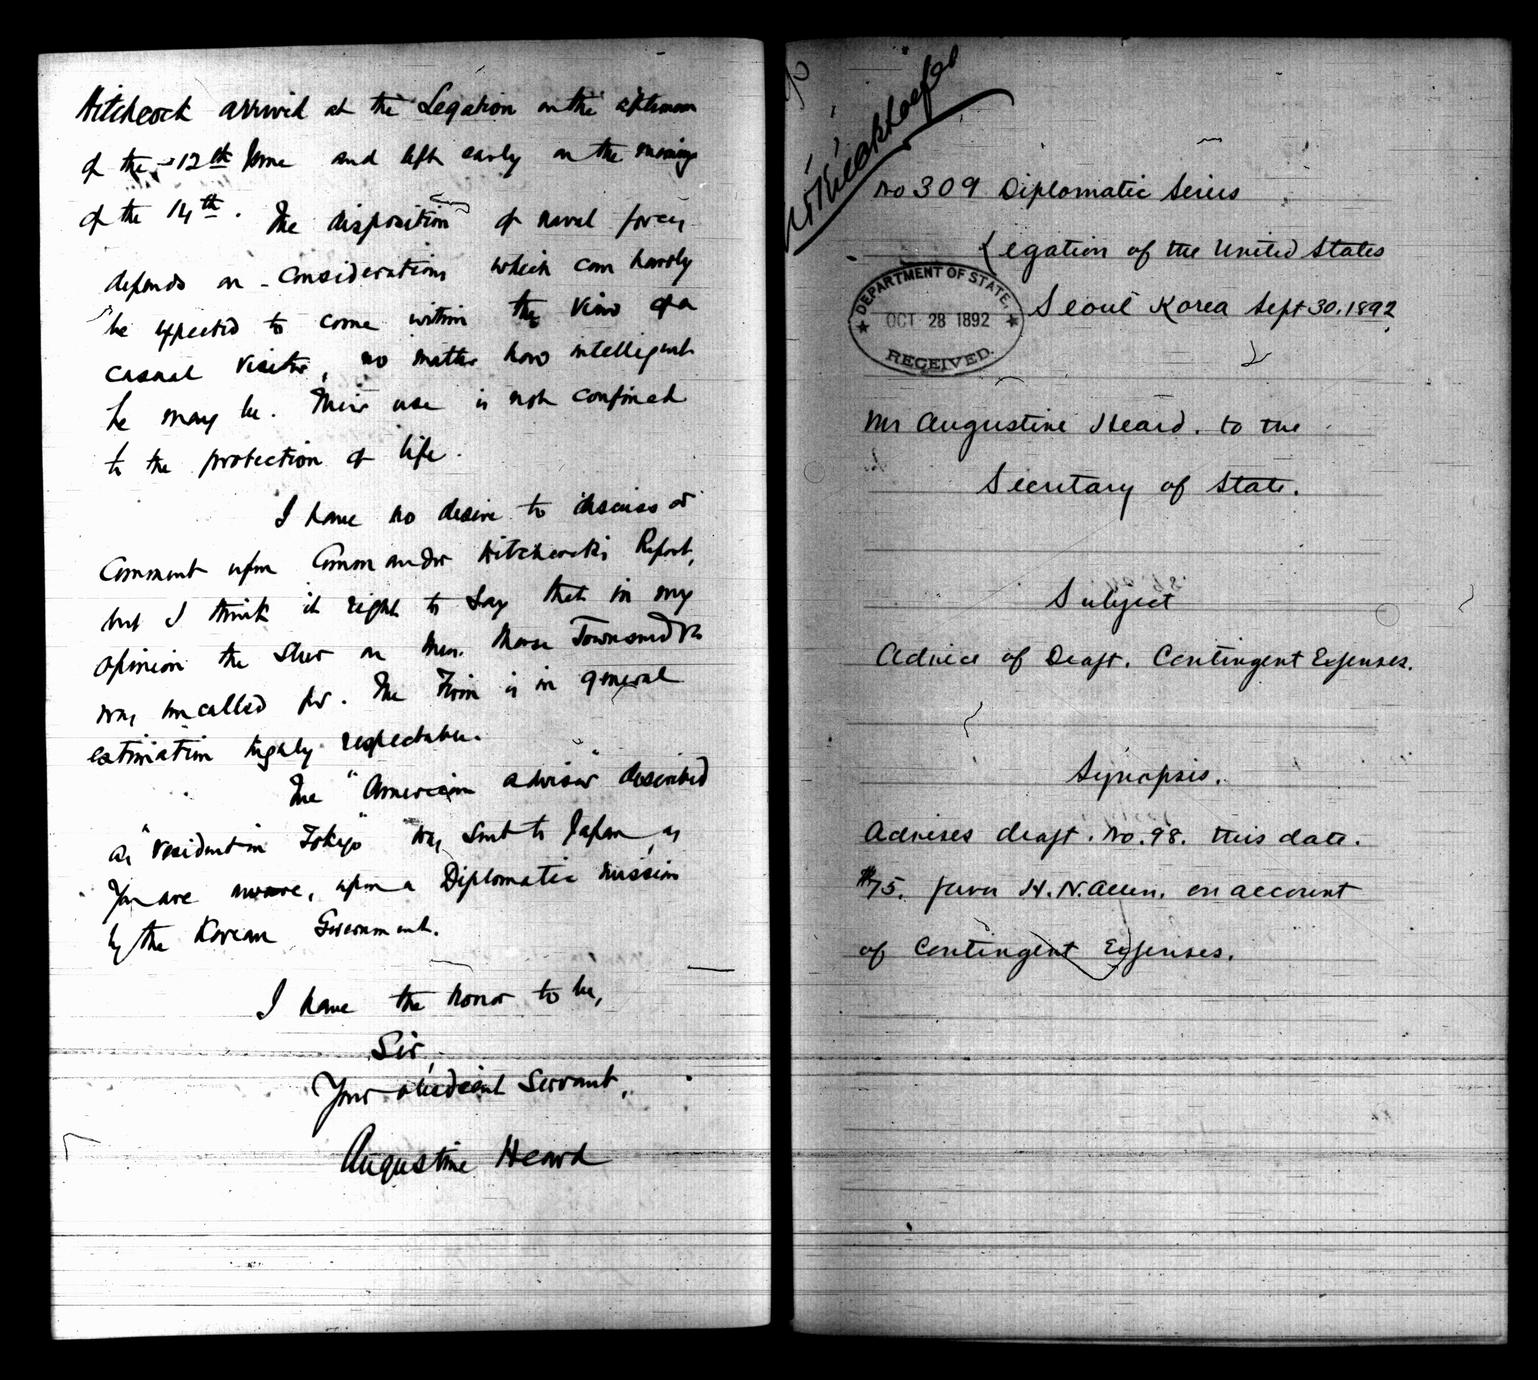 Hitchcock arrived at the Legation on the afternoon
of the 12th June and left early on the morning
of the 14th. The disposition of naval forces
depends on considerations which can hardly
be expected to come within the view of a
casual visitor, no matter how intelligent
he may be. Their use is not confined
to the protection of life.
I have no desire to discuss or
comment upon Commander Hitchcock's Report,
but I think it right to say that in my
opinion the slur on Mess. Morse Townsend &
was uncalled for. The Firm is in general
estimation highly respectable.
The "American adviser" described
as "resident in Tokyo" was sent to Japan, as
you are aware, upon a Diplomatic mission
by the Korean Government.
I have the honor to be,
Sir,
Your obedient Servant,
Augustine Heard
No 309 Diplomatic Series
Legation of the United States
Seoul Korea Sept 30. 1892
DEPARTMENT OF STATE,
OCT 28 1892
RECEIVED.
Mr Augustine Heard. to the
Secretary of State.
Subject
Advice of Draft. Contingent Expenses.
Synopsis.
Advises draft. No. 98. this date.
$75. favor H. N. Allen. on account
of Contingent Expenses.